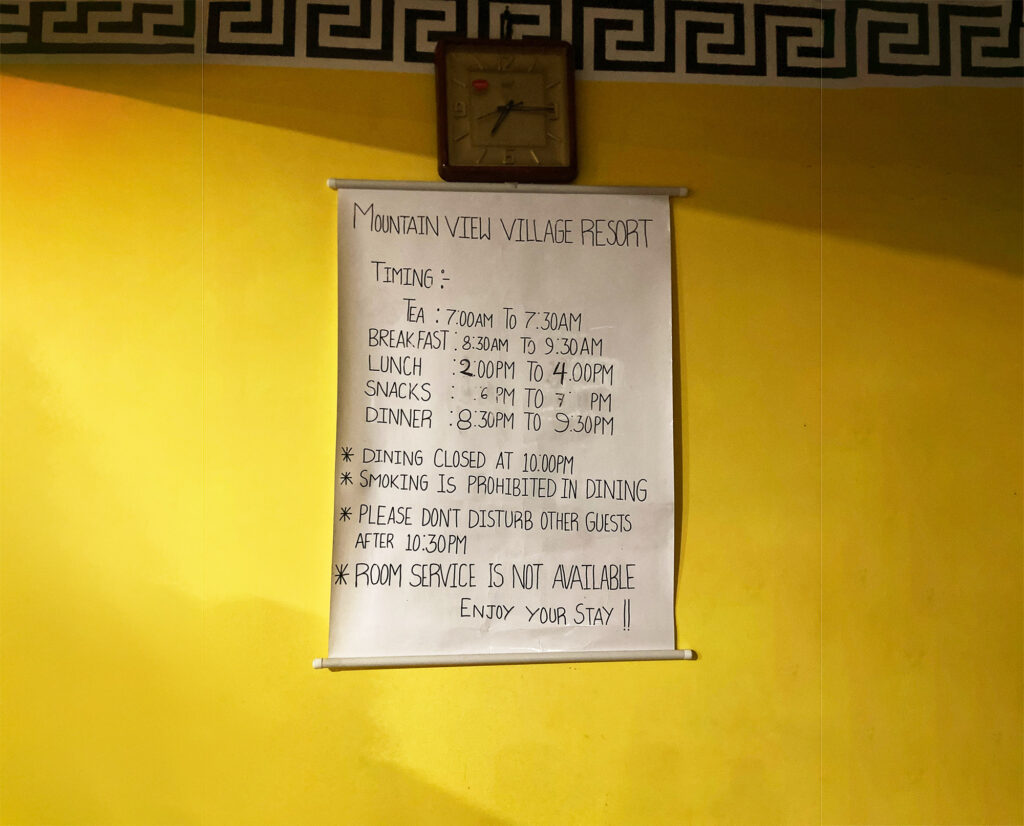 MOUNTAIN VIEW VILLAGE RESORT
TIMING :-
TEA : 7:00AM TO 7:30AM
BREAKFAST : 8:30AM TO 9:30AM
LUNCH : 2:00PM TO 4:00PM
SNACKS : 6 PM TO 7 PM
DINNER : 8:30PM TO 9:30PM
* DINING CLOSED AT 10:00PM
* SMOKING IS PROHIBITED IN DINING
* PLEASE DON'T DISTURB OTHER GUESTS
AFTER 10:30PM
* ROOM SERVICE IS NOT AVAILABLE
ENJOY YOUR STAY !!